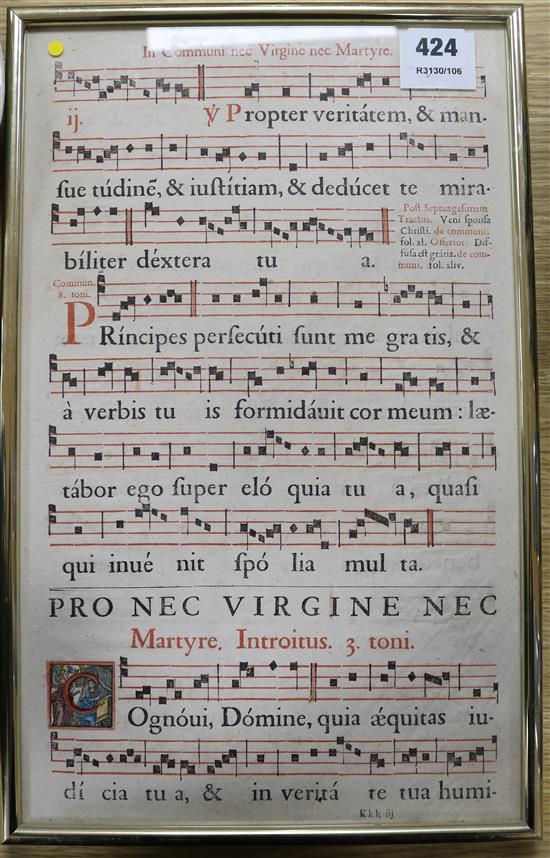 In Communi nec Virgine nec Martyre.
424
R3130/106
ij. ℣ Propter veritátem, & man-
sue túdinē, & iustítiam, & dedúcet te mira-
Post Septuagesimam
Tractus. Veni sponsa
Christi. de communi.
fol. xl. Offertor. Dif-
fusa est grátia. de com-
muni. fol. xliv.
bíliter déxtera tu a.
Commun.
8. toni.
PRíncipes persecúti sunt me gra tis, &
à verbis tu is formidáuit cor meum : læ-
tábor ego super eló quia tu a, quasi
qui inué nit spó lia mul ta.
PRO NEC VIRGINE NEC
Martyre. Introitus. 3. toni.
COgnóui, Dómine, quia æquitas iu-
dí cia tu a, & in veritá te tua humi-
Kkk iij